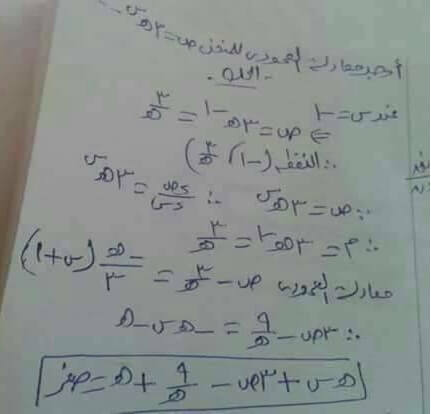 أوجد معادلة العمودى للمنحنى ص = ٣هـ^س ...
ـ الحل ـ
عند س = -١
⇐ ص = ٣هـ^-١ = ٣/هـ
∴ النقطة (-١، ٣/هـ)
∵ ص = ٣هـ^س ∴ دص/دس = ٣هـ^س
∴ م = ٣هـ^-١ = ٣/هـ
معادلة العمودى ص - ٣/هـ = -هـ/٣ (س+١)
∴ ٣ص - ٩/هـ = -هـ س - هـ
هـ س + ٣ص - ٩/هـ + هـ = صفر